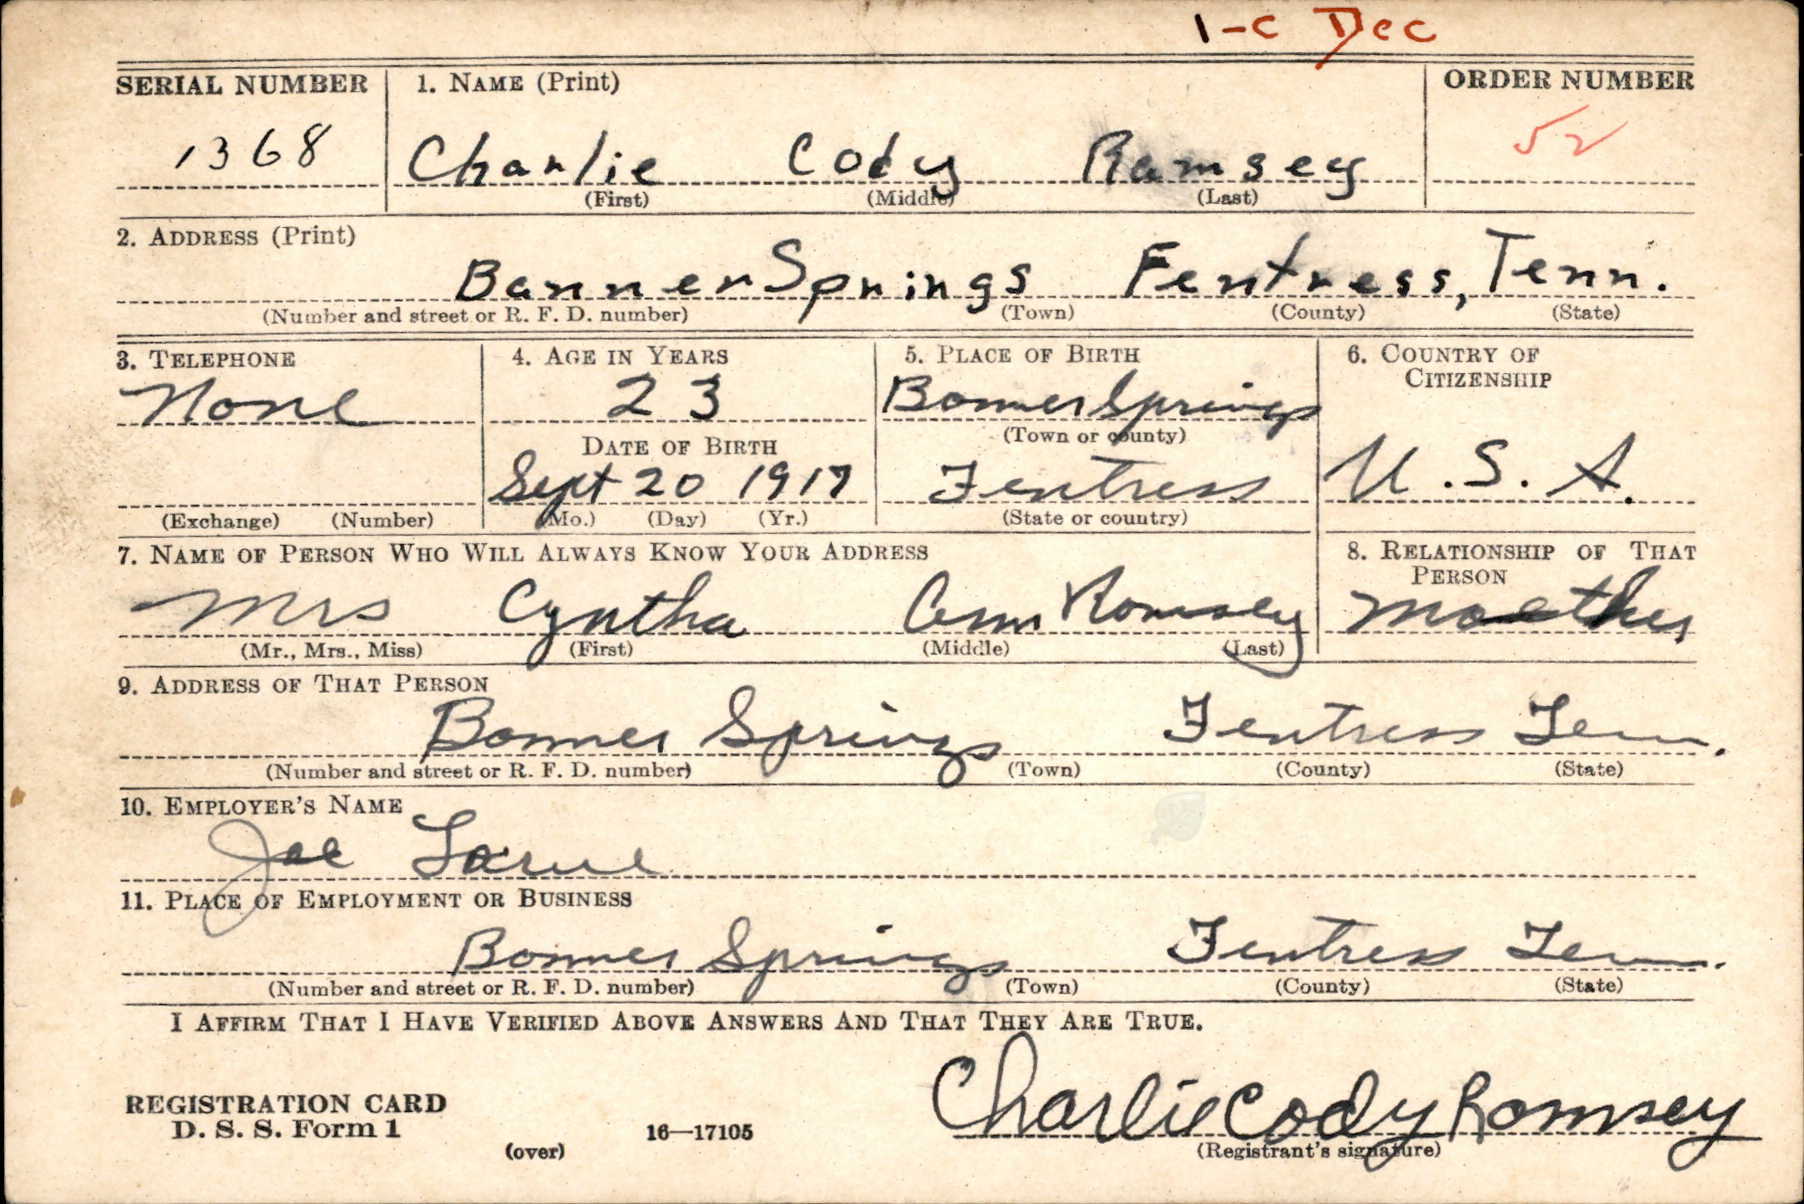 1-C Dec
SERIAL NUMBER 1. NAME (Print) ORDER NUMBER
1368 Charlie Cody Ramsey 52
(First) (Middle) (Last)
2. ADDRESS (Print)
Banner Springs Fentress, Tenn.
(Number and street or R. F. D. number) (Town) (County) (State)
3. TELEPHONE 4. AGE IN YEARS 5. PLACE OF BIRTH 6. COUNTRY OF CITIZENSHIP
None 23 Banner Springs
DATE OF BIRTH (Town or county)
Sept 20 1917 Fentress U.S.A.
(Exchange) (Number) (Mo.) (Day) (Yr.) (State or country)
7. NAME OF PERSON WHO WILL ALWAYS KNOW YOUR ADDRESS 8. RELATIONSHIP OF THAT PERSON
Mrs Cyntha Ann Ramsey Mother
(Mr., Mrs., Miss) (First) (Middle) (Last)
9. ADDRESS OF THAT PERSON
Banner Springs Fentress Tenn.
(Number and street or R. F. D. number) (Town) (County) (State)
10. EMPLOYER'S NAME
Joe
11. PLACE OF EMPLOYMENT OR BUSINESS
Banner Springs Fentress Tenn.
(Number and street or R. F. D. number) (Town) (County) (State)
I AFFIRM THAT I HAVE VERIFIED ABOVE ANSWERS AND THAT THEY ARE TRUE.
Charlie Cody Ramsey
REGISTRATION CARD
D. S. S. Form 1 (over) 16—17105 (Registrant's signature)